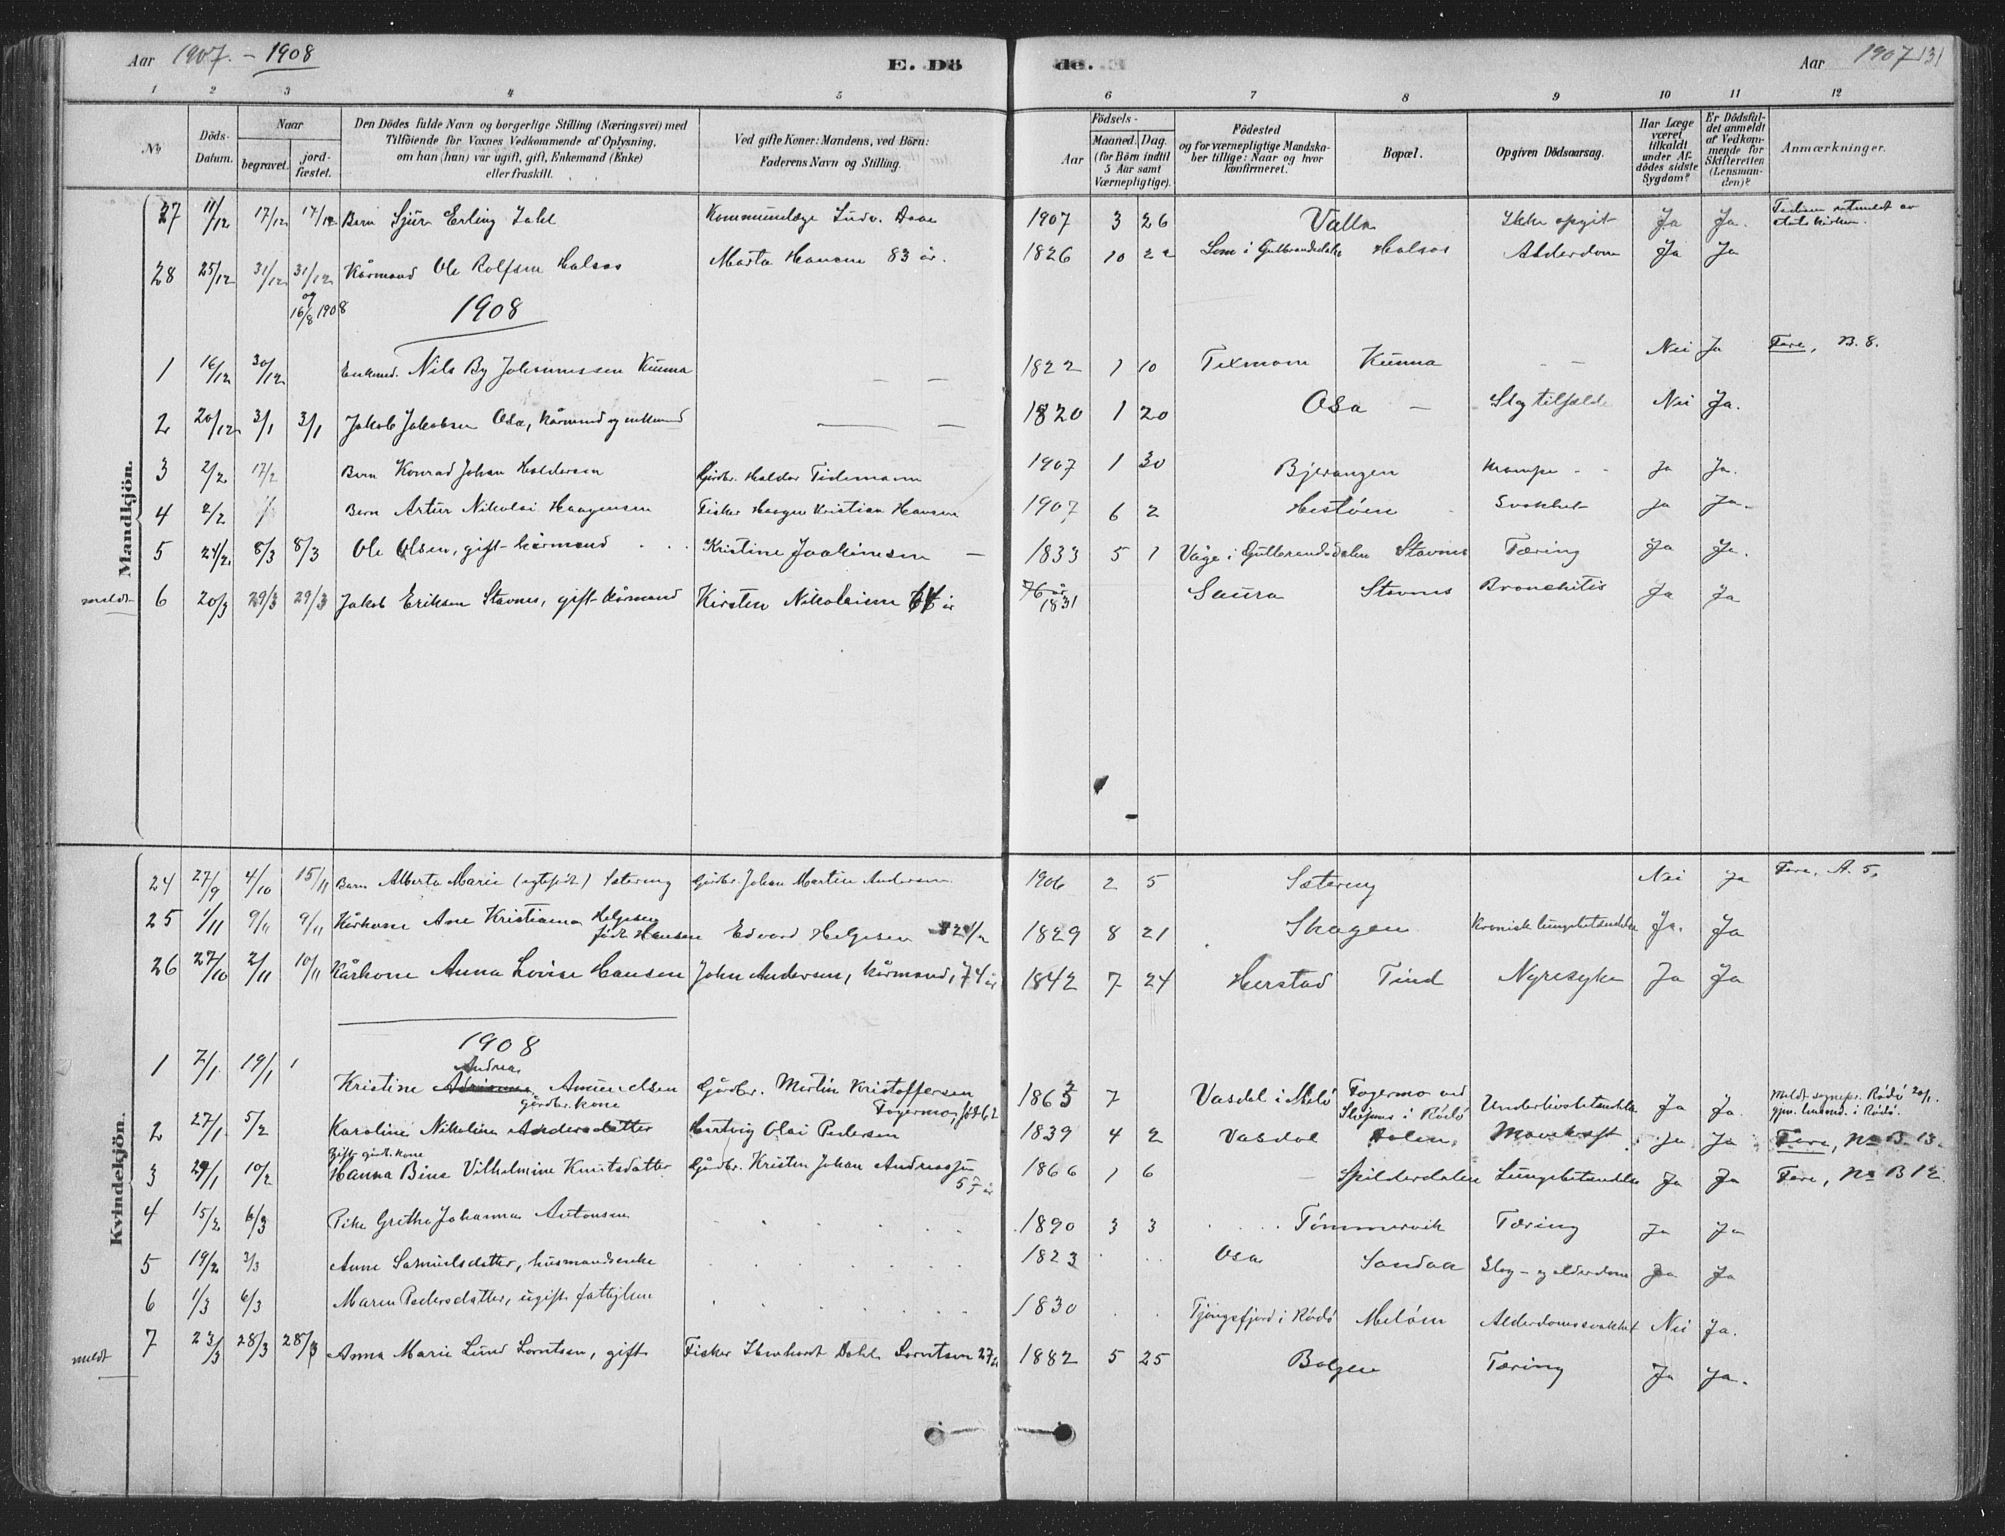 Aar 1907. - 1908
E. Dö
de.
Aar 1907 131
1 2 3 4 5 6 7 8 9 10 11 12
No
Döds-Datum.
Naar
begravet.
jord-fæstet.
Den Dödes fulde Navn og borgerlige Stilling (Næringsvei) med
Tilföiende for Voxnes Vedkommende af Oplysning,
om han (hun) var ugift, gift, Enkemand (Enke)
eller fraskilt.
Ved gifte Koner: Mandens, ved Börn:
Faderens Navn og Stilling.
Födsels-
Aar
Maaned. Dag.
(for Börn indtil
5 Aar samt
Værnepligtige).
Födested
og for værnepligtige Mandska-
ber tillige: Naar og hvor
konfirmeret.
Bopæl.
Opgiven Dödsaarsag.
Har Læge
været
tilkaldt
under Af-
dödes sidste
Sygdom?
Er Dödsfal-
det anmeldt
af Vedkom-
mende for
Skifteretten
(Lensman-
den)?
Anmærkninger.
Mandkjön.
27 11/12 17/12 17/12 Barn Sjur Erling Kommunelæge Ludv. Daae 1907 3 26 Valla Ikke opgit Ja Ja. utmeldt av statskirken.
28 25/12 31/12 31/12 Kårmand Ole Rolfsen Halsos Marta Hansen 83 år. 1826 10 22 Lom i Gulbrandsdalen Halsos Alderdom Ja Ja
og 16/8 1908
1908
1 16/12 30/12 Enkemd. Nils By Johannessen Kunna — — 1822 1 10 Texmom Kunna — Nei Ja Fore, B. 8.
2 20/12 3/1 3/1 Jakob Jakobsen Osa, kårmand og enkemand — — 1820 1 20 Osa — Slagtilfælde Nei Ja.
3 2/2 17/2 Barn Konrad Johan Haldorsen Gårdbr. Haldor Tidemann 1907 1 30 Bjerangen Krampe Ja Ja.
4 2/2 Barn Artur Nikolai Haagensen Fisker Haagen Kristian Hansen 1907 6 2 Svakhet Ja Ja.
5 24/2. 8/3 8/3 Ole Olsen, gift kårmand Kristine Joakimsen — 1833 5 1 Våge i Gulbrandsdalen Stavnes Tæring Ja Ja.
meldt 6 20/3 29/3 29/3 Jakob Eriksen Stavnes, gift kårmand Kirsten Nikolaisen år 76 år 1831 Saura Stavnes Bronchitis Ja Ja
Kvindekjön.
24 27/9 4/10 15/11 Barn Alberta Marie (egtefødt) Sætering Gårdbr. Johan Martin Andersen 1906 2 5 Sætering Nei Ja Fore, A. 5.
25 1/11 9/11 9/11 Kårkone Ane Kristiana Helgesen født Hansen Edvard Helgesen 1829 8 21 Skagen Kronisk lungebetændelse Ja. Ja
26 27/10 2/11 10/11 Kårkone Anna Lovise Hansen John Andersen, kårmand, 74 år 1842 7 24 Herstad Tind Nyresyke Ja Ja
1908
1 7/1 19/1 Kristine Andrea Amundsen gårdbr. kone Gårdbr. Martin Kristoffersen Fogermo, født 62 1863 7 Vasdal i Melø Fogermo ved i Rødø Underlivsbetændelse Ja Ja. Meldt sognepr. Rødø 20/1. gjen. lensmd. i Rødø.
2 27/1 5/2 Karoline Nikoline Andersdatter Hartvig Olai Pedersen 1839 4 2 Vasdal Dalen, Mavekræft Ja Ja Fore, No B 13.
3 29/1 10/2 Gift gårdb. kone Hanna Bine Vilhelmine Knutsdatter Gårdbr. Kristen Johan Andreassen 57 år 1866 1 6 — Spilderdalen Lungebetændelse Ja Ja Fore, No B 12.
4 15/2 6/3 Pike Grethe Johanna Antonsen 1890 3 3 Tømmervik Tæring Ja Ja
5 19/2 3/3 Anne Samuelsdatter, husmandsenke 1823 Osa Sandaa Slag- og alderdom Ja Ja
6 1/3 6/3 Maren Pedersdatter, ugift fattiglem 1830 Tjongsfjord i Rødø Meløen Alderdomssvakhet Nei Ja.
meldt 7 23/3 28/3 28/3 Anna Marie Lund Lorntsen, gift Fisker Ibenhardt Dahl Lorntsen 27 år 1882 5 25 Bolgen Tæring Ja Ja.